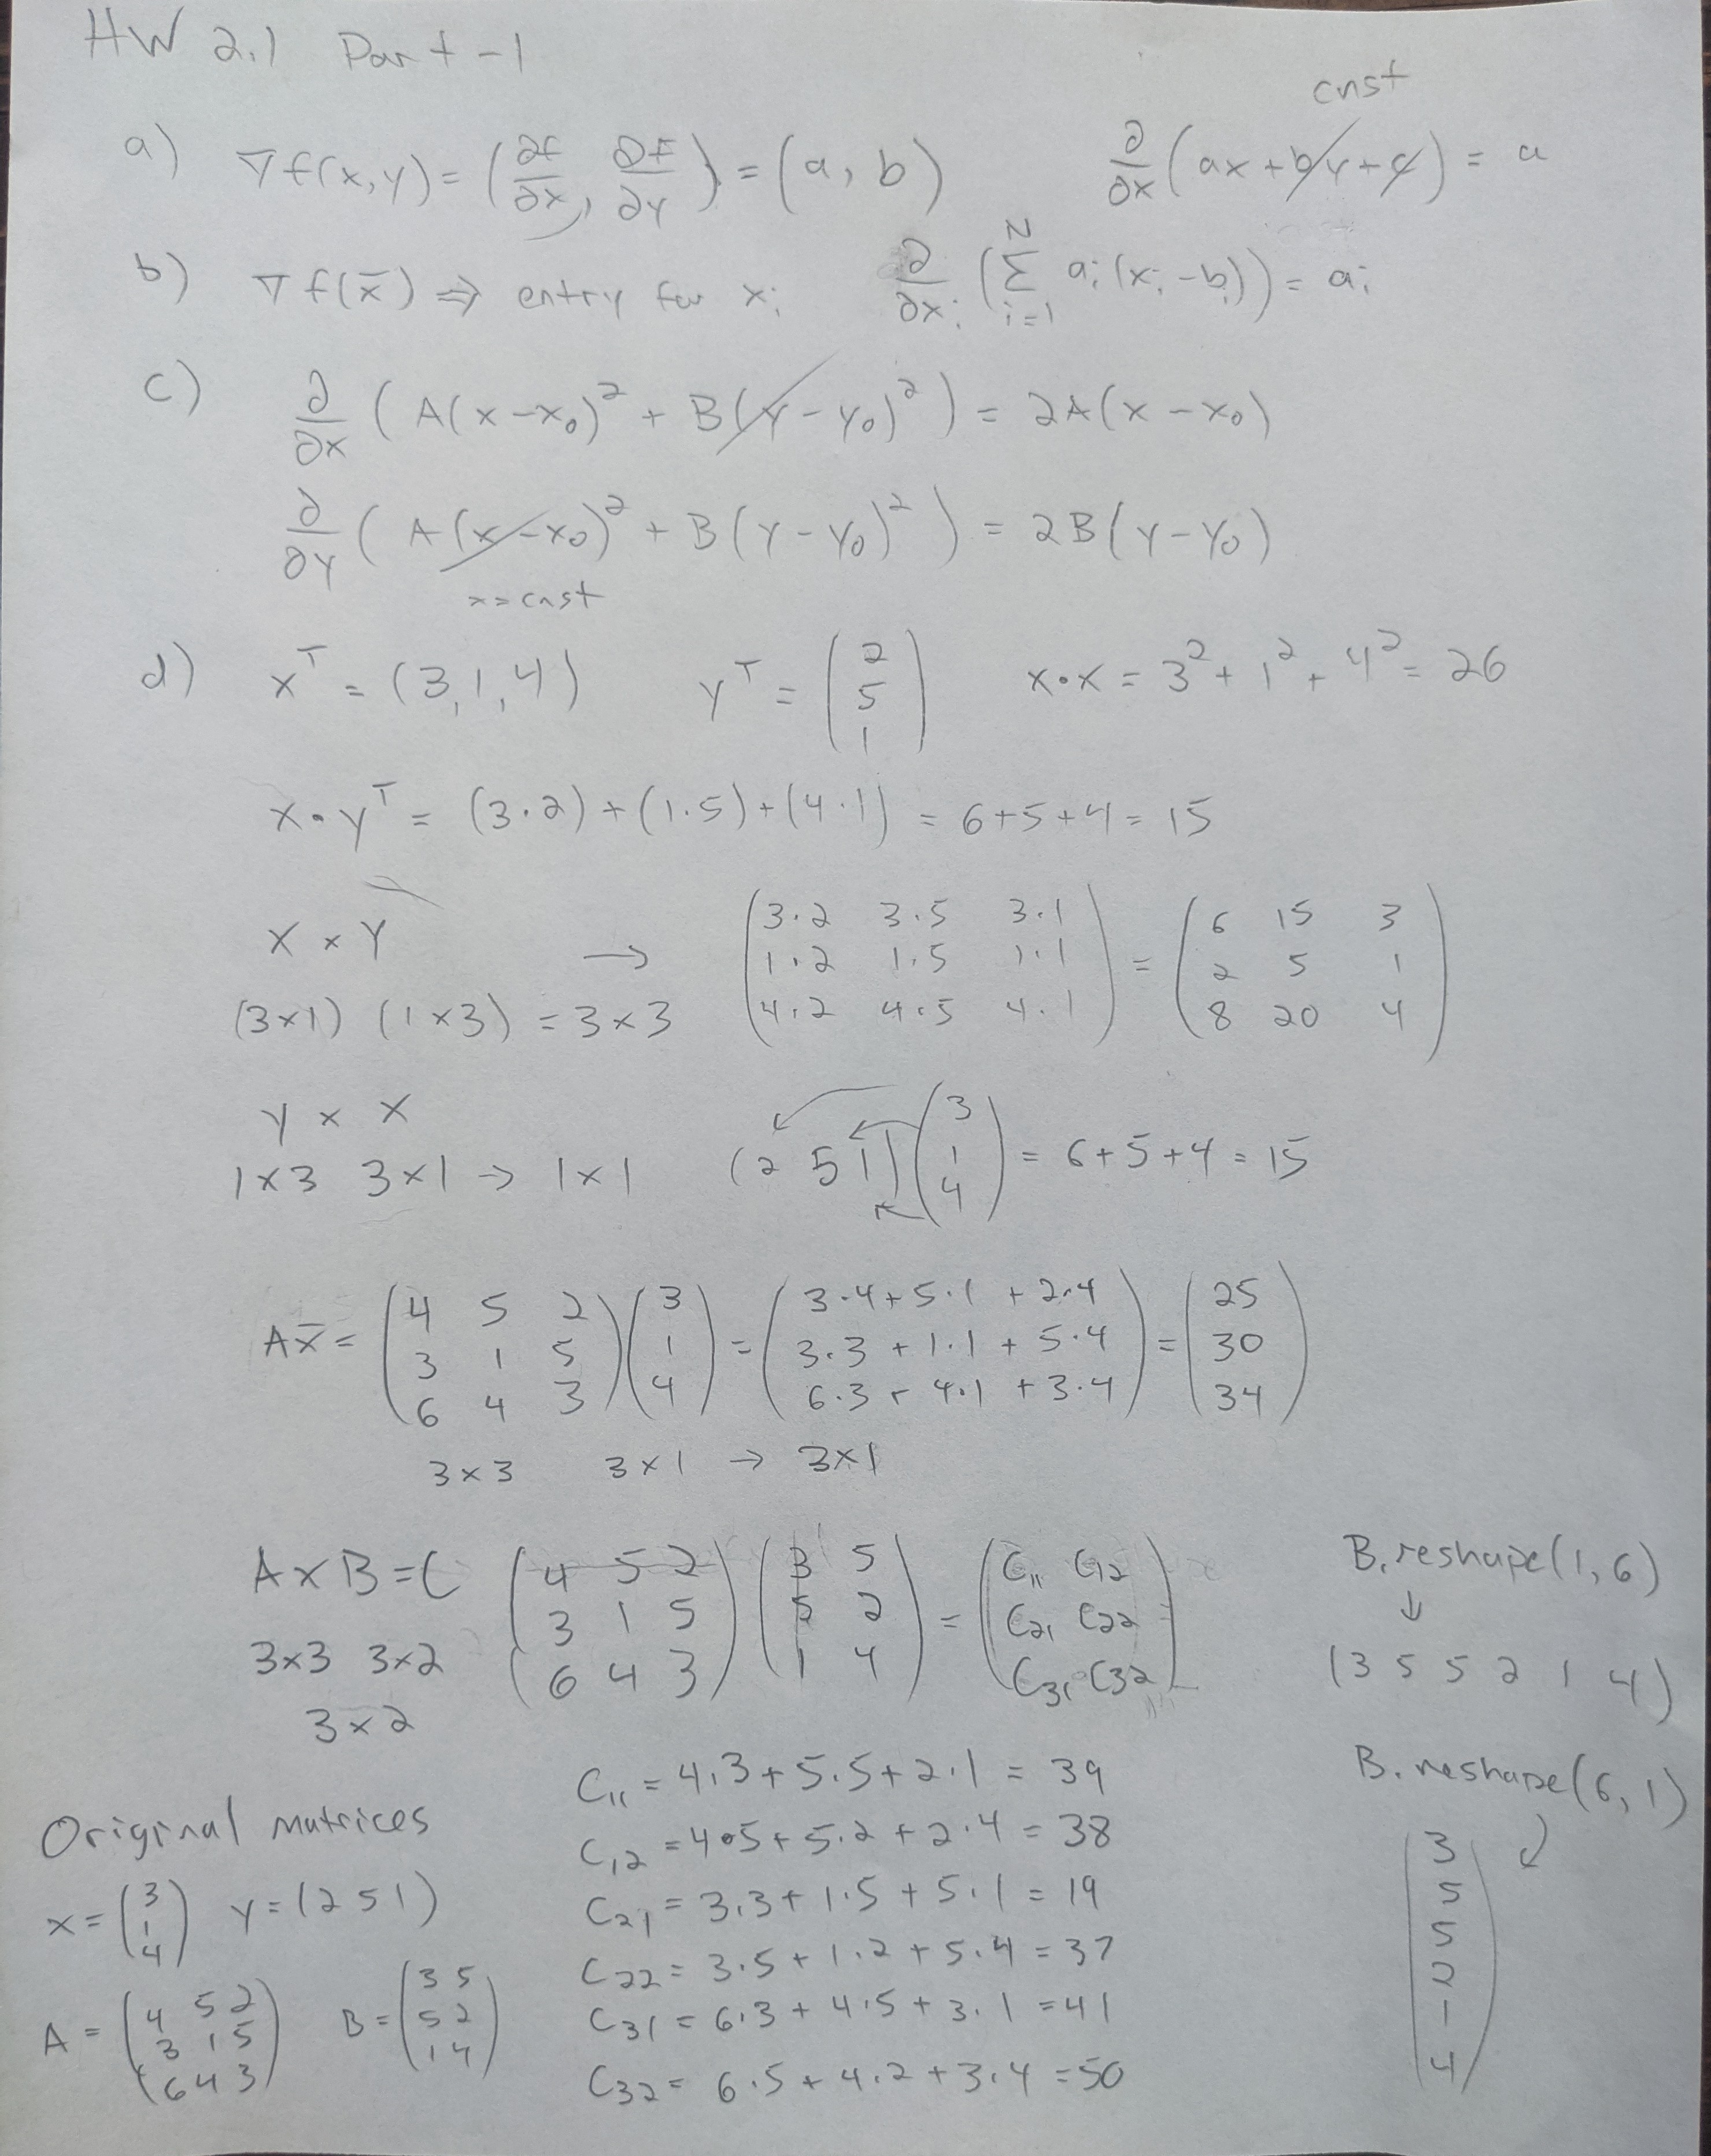 HW 2.1 Part -1
cnst
a) ∇f(x,y) = (∂f/∂x, ∂f/∂y) = (a, b) ∂/∂x (ax + by + c) = a
b) ∇f(x̄) ⇒ entry for xᵢ ∂/∂xᵢ (Σ_{i=1}^{N} aᵢ(xᵢ - bᵢ)) = aᵢ
c) ∂/∂x (A(x-x₀)² + B(y-y₀)²) = 2A(x-x₀)
∂/∂y (A(x-x₀)² + B(y-y₀)²) = 2B(y-y₀)
x=cnst
d) xᵀ = (3,1,4) yᵀ = (2 5 1) x•x = 3² + 1² + 4² = 26
x•yᵀ = (3·2) + (1·5) + (4·1) = 6+5+4 = 15
X × Y → (3·2 3·5 3·1
1·2 1·5 1·1
4·2 4·5 4·1) = (6 15 3
2 5 1
8 20 4)
(3×1) (1×3) = 3×3
y × x
1×3 3×1 → 1×1 (2 5 1)(3 1 4) = 6+5+4 = 15
Ax̄ = (4 5 2
3 1 5
6 4 3)(3 1 4) = (3·4+5·1+2·4
3·3+1·1+5·4
6·3+4·1+3·4) = (25 30 34)
3×3 3×1 → 3×1
A×B=C (4 5 2
3 1 5
6 4 3)(3 5
5 2
1 4) = (C₁₁ C₁₂
C₂₁ C₂₂
C₃₁ C₃₂)
3×3 3×2
3×2
B.reshape(1,6)
↓
(3 5 5 2 1 4)
B.reshape(6,1)
3
5
5
2
1
4
C₁₁ = 4·3+5·5+2·1 = 39
C₁₂ = 4•5+5·2+2·4 = 38
C₂₁ = 3·3+1·5+5·1 = 19
C₂₂ = 3·5+1·2+5·4 = 37
C₃₁ = 6·3+4·5+3·1 = 41
C₃₂ = 6·5+4·2+3·4 = 50
Original matrices
x = (3 1 4) y = (2 5 1)
A = (4 5 2
3 1 5
6 4 3) B = (3 5
5 2
1 4)